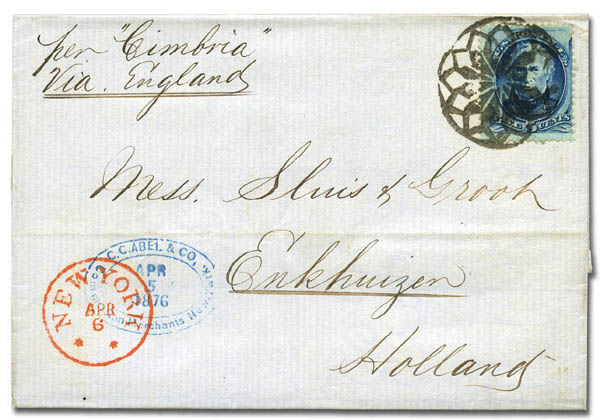 per "Cimbria"
Via. England
Mess. Sluis & Groot
Enkhuizen
Holland
C. C. ABEL & CO.
APR
5
1876
Merchants New
NEW YORK
APR
6
CENTS